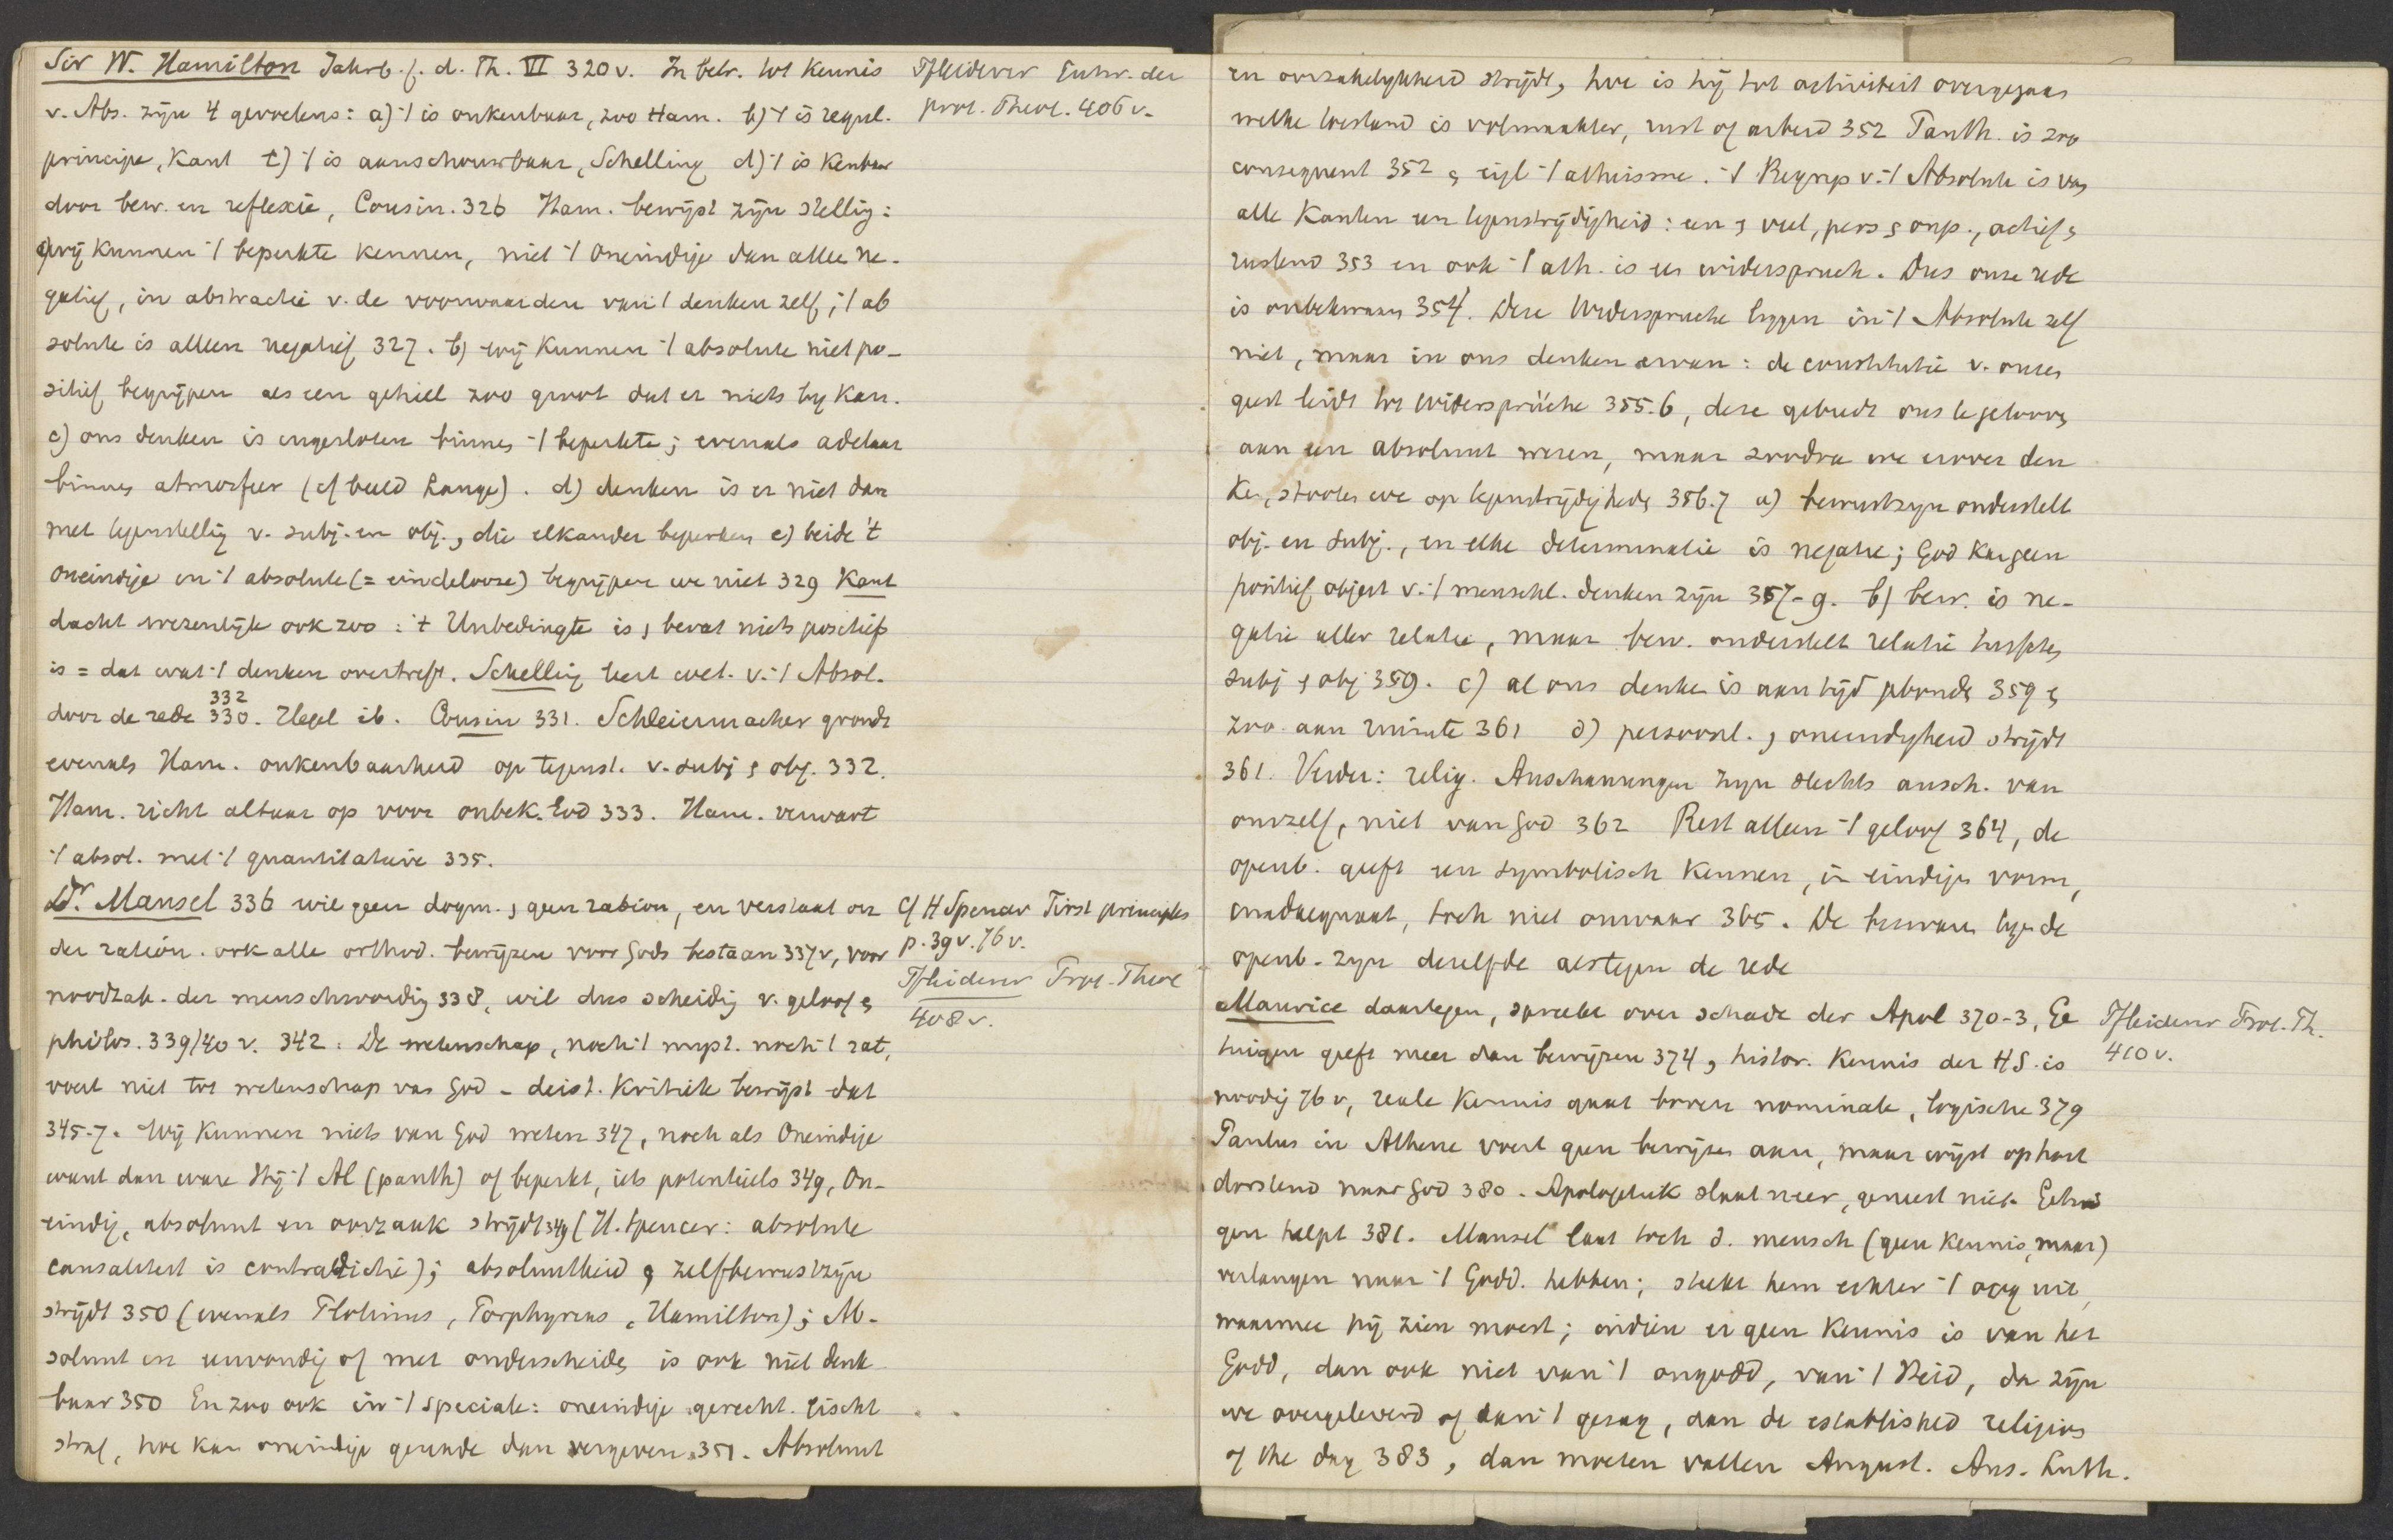 Sir W. Hamilton Jahrb. f. d. Th. VI 320 v. In betr. tot kennis
v. Abs. zijn 4 gevoelens: a) 't is onkenbaar, zoo Ham. b) 't is regul.
principe, Kant c) 't is aanschouwbaar, Schelling d) 't is kenbaar
door bew. en reflexie, Cousin. 326 Ham. bewijst zijn stellig:
a) wij kunnen 't beperkte kennen, niet 't Oneindige dan alleen ne-
gatief, in abstractie v. de voorwaarden van 't denken zelf; 't ab
solute is alleen negatief 327. b) wij kunnen 't absolute niet po-
sitief begrijpen als een geheel zoo groot dat er niets bij kan.
c) ons denken is ingesloten binnen 't beperkte; evenals adelaar
binnen atmosfeer (cf beeld Lange). d) denken is er niet dan
met tegenstellig v. subj. en obj., die elkander beperken e) beide 't
oneindige en 't absolute (= eindelooze) begrijpen we niet 329 Kant
dacht wezenlijk ook zoo: 't Unbedingte is, bevat niets positiefs
is = dat wat 't denken overtreft. Schelling leert wet. v. 't Absol.
332
door de rede 330. Hegel ib. Cousin 331. Schleiermacher grondt
evenals Ham. onkenbaarheid op tegenst. v. subj & obj. 332.
Ham. richt altaar op voor onbek. God 333. Ham. verwart
't absol. met 't quantitatieve 335.
Dr. Mansel 336 wil geen dogm., geen ration, en verstaat on
der ration. ook alle orthod. bewijzen voor Gods bestaan 337 v, voor
noodzak. der menschwording 338, wil dus scheidig v. geloof &
philos. 339/40 v. 342. De wetenschap, noch 't myst. noch 't rat,
voert niet tot wetenschap van God - deist. Kritiek bewijst dat
345-7. Wij kunnen niets van God weten 347, noch als Oneindige
want dan ware Hij 't Al (panth) of beperkt, iets potentieels 349, On-
eindig, absoluut en oorzaak strijdt 349 (H. Spencer: absolute
causaliteit is contradictie); absoluutheid & zelfbewustzijn
strijdt 350 (evenals Plotinus, Porphyrius, Hamilton); Ab-
soluut en eenvoudig of met onderscheiden is ook niet denk
baar 350 En zoo ook in 't speciale: oneindige gerecht. eischt
straf, hoe kan oneindige genade dan vergeven 351. Absoluut
Pfleiderer Entw. der
prot. Theol. 406 v.
cf H Spencer First principles
p. 39 v. 76 v.
Pfleiderer Prot. Theol
408 v.
en oorzakelijkheid strijdt, hoe is hij tot activiteit overgegaan
welke toestand is volmaakter, rust of arbeid 352 Panth. is zoo
consequent 352 & eigl 't atheisme. 't Begrip v. 't Absolute is van
alle kanten een tegenstrijdigheid: een & veel, pers & onp., actief &
rustend 353 en ook 't ath. is een widerspruch. Dus onze rede
is onbekwaam 354. Deze Widerspruche liggen in 't Absolute zelf
niet, maar in ons denken ervan: de constitutie v. onzen
geest leidt tot Widersprüche 355.6, deze gebiedt ons te gelooven
aan een absoluut wezen, maar zoodra we erover den
ken, stooten we op tegenstrijdigheden 356.7 a) bewustzijn onderstelt
obj. en subj., en elke determinatie is negatie; God kan geen
positief object v. 't menschl. denken zijn 357-9. b) bew. is ne-
gatie aller relatie, maar bew. onderstelt relatie tusschen
subj & obj 359. c) al ons denken is aan tijd gebonden 359 &
zoo aan ruimte 361 d) persoonl. & oneindigheid strijdt
361. Verder: relig. Anschauungen zijn slechts ansch. van
onszelf, niet van God 362 Rest alleen 't geloof 364, de
openb. geeft een symbolisch kennen, in eindigen vorm,
inadaequaat, toch niet onwaar 365. De bezwaren tegen de
openb. zijn dezelfde als tegen de rede
Maurice daartegen, spreekt over schade der Apol 370-3, Ge
tuigen geeft meer dan bewijzen 374, histor. kennis der HS. is
noodig 76 v, reale kennis gaat boven nominale, logische 379
Paulus in Athene voert geen bewijzen aan, maar wijst op hart
dorstend naar God 380. Apologetiek slaat neer, geneest niet. Getui
gen helpt 381. Mansel laat toch d. mensch (geen kennis, maar)
verlangen naar 't Godd. hebben; steekt hem echter 't oog uit,
waarmee hij zien moest; indien er geen kennis is van het
Godd, dan ook niet van 't ongodd, van 't Neid, dan zijn
we overgeleverd of aan 't gezag, aan de established religions
of the day 383, dan moeten vallen August. Ans. Luth.
Pfleiderer Prot. Th.
410 v.